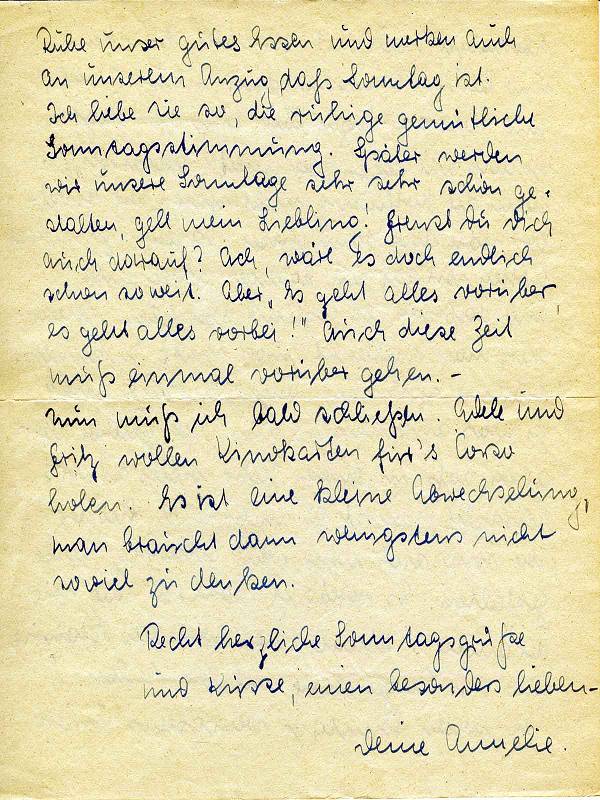 Ruhe unser gutes Essen und merken auch
an unserem Anzug, daß Sonntag ist.
Ich liebe sie so, die ruhige gemütliche
Sonntagsstimmung. Später werden
wir unsere Sonntage sehr sehr schön ge-
stalten, gell mein Liebling! Freust du dich
auch darauf? Ach, wäre es doch endlich
schon soweit. Aber „Es geht alles vorüber,
es geht alles vorbei!" Auch diese Zeit
muß einmal vorüber gehen. –
Nun muß ich bald schließen. Adele und
Fritz wollen Kinokarten für's Corso
holen. Es ist eine kleine Abwechselung,
man braucht dann wenigstens nicht
soviel zu denken.
Recht herzliche Sonntagsgrüße
und Küsse, einen besonders lieben –
Deine Annelie.